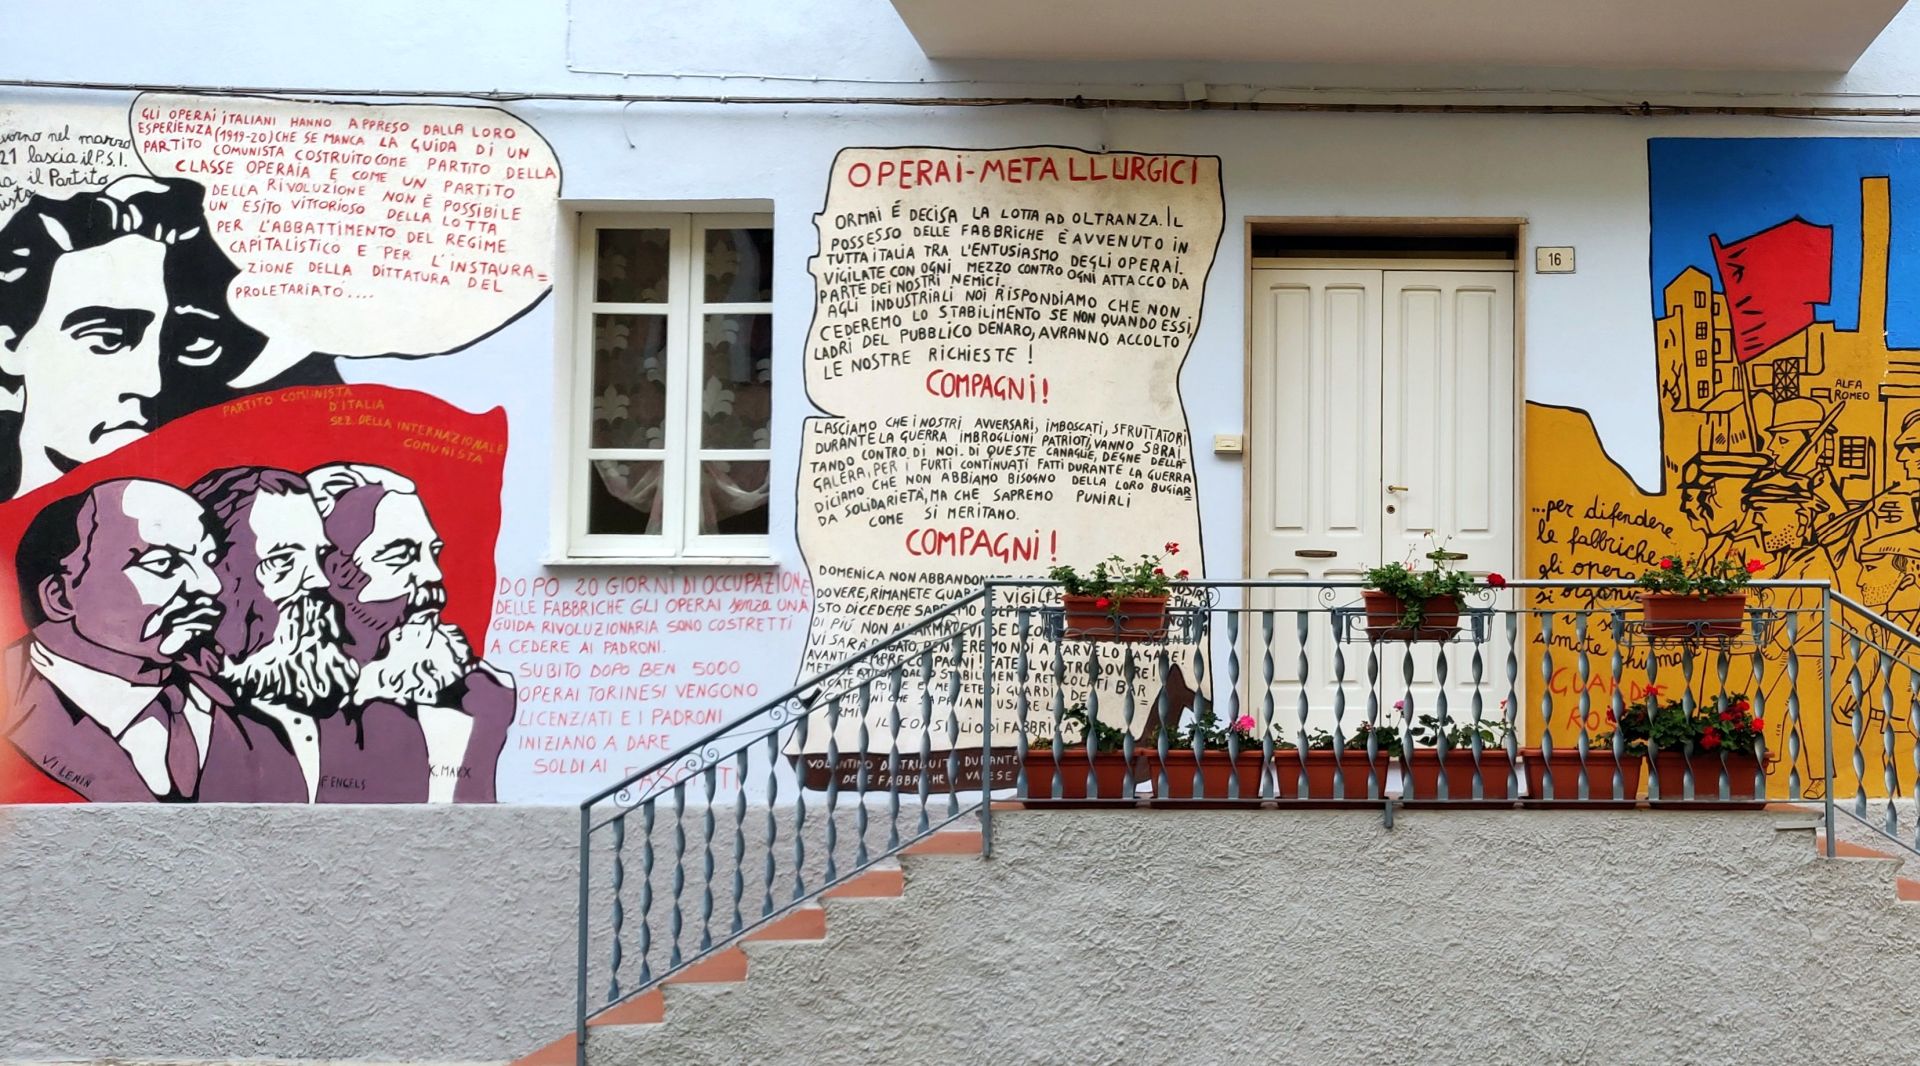 orno nel marzo
21 lascia il P.S.I.
il Partito
GLI OPERAI ITALIANI HANNO APPRESO DALLA LORO
ESPERIENZA (1919-20) CHE SE MANCA LA GUIDA DI UN
PARTITO COMUNISTA COSTRUITO COME PARTITO DELLA
CLASSE OPERAIA E COME UN PARTITO
DELLA RIVOLUZIONE NON È POSSIBILE
UN ESITO VITTORIOSO DELLA LOTTA
PER L'ABBATTIMENTO DEL REGIME
CAPITALISTICO E PER L'INSTAURA=
ZIONE DELLA DITTATURA DEL
PROLETARIATO....
PARTITO COMUNISTA
D'ITALIA
SEZ. DELLA INTERNAZIONALE
COMUNISTA
V.I LENIN
F ENGELS
K. MARX
DOPO 20 GIORNI DI OCCUPAZIONE
DELLE FABBRICHE GLI OPERAI senza UNA
GUIDA RIVOLUZIONARIA SONO COSTRETTI
A CEDERE AI PADRONI.
SUBITO DOPO BEN 5000
OPERAI TORINESI VENGONO
LICENZIATI E I PADRONI
INIZIANO A DARE
SOLDI AI
FASCISTI
OPERAI-METALLURGICI
ORMAI É DECISA LA LOTTA AD OLTRANZA. IL
POSSESSO DELLE FABBRICHE È AVVENUTO IN
TUTTA ITALIA TRA L'ENTUSIASMO DEGLI OPERAI.
VIGILATE CON OGNI MEZZO CONTRO OGNI ATTACCO DA
PARTE DEI NOSTRI NEMICI.
AGLI INDUSTRIALI NOI RISPONDIAMO CHE NON
CEDEREMO LO STABILIMENTO SE NON QUANDO ESSI,
LADRI DEL PUBBLICO DENARO, AVRANNO ACCOLTO
LE NOSTRE RICHIESTE !
COMPAGNI!
LASCIAMO CHE I NOSTRI AVVERSARI, IMBOSCATI, SFRUTTATORI
DURANTE LA GUERRA IMBROGLIONI PATRIOTI, VANNO SBRAI
TANDO CONTRO DI NOI. DI QUESTE CANAGLIE, DEGNE DELLA
GALERA, PER I FURTI CONTINUATI FATTI DURANTE LA GUERRA
DICIAMO CHE NON ABBIAMO BISOGNO DELLA LORO BUGIAR=
DA SOLIDARIETÀ, MA CHE SAPREMO PUNIRLI
COME SI MERITANO.
COMPAGNI!
DOMENICA NON ABBANDONATE
DOVERE, RIMANETE VIGILI
STO DI CEDERE
DI PIÙ NON ALLARMATEVI SE
VI SARÀ PAGATO, PENSEREMO NOI A FARVELO PAGARE!
AVANTI SEMPRE COMPAGNI! FATE IL VOSTRO DOVERE!
STABILIMENTO RETICOLATI BAR
METTETE DI GUARDIA DE
COMPAGNI CHE SAPPIANO USARE LE
ARMI. IL CONSIGLIO DI FABBRICA
VOLANTINO DISTRIBUITO DURANTE
DELLE FABBRICHE, VARESE
16
ALFA
ROMEO
...per difendere
le fabbriche
gli opera
si organi
in
armate chiama
GUARDIE
RO